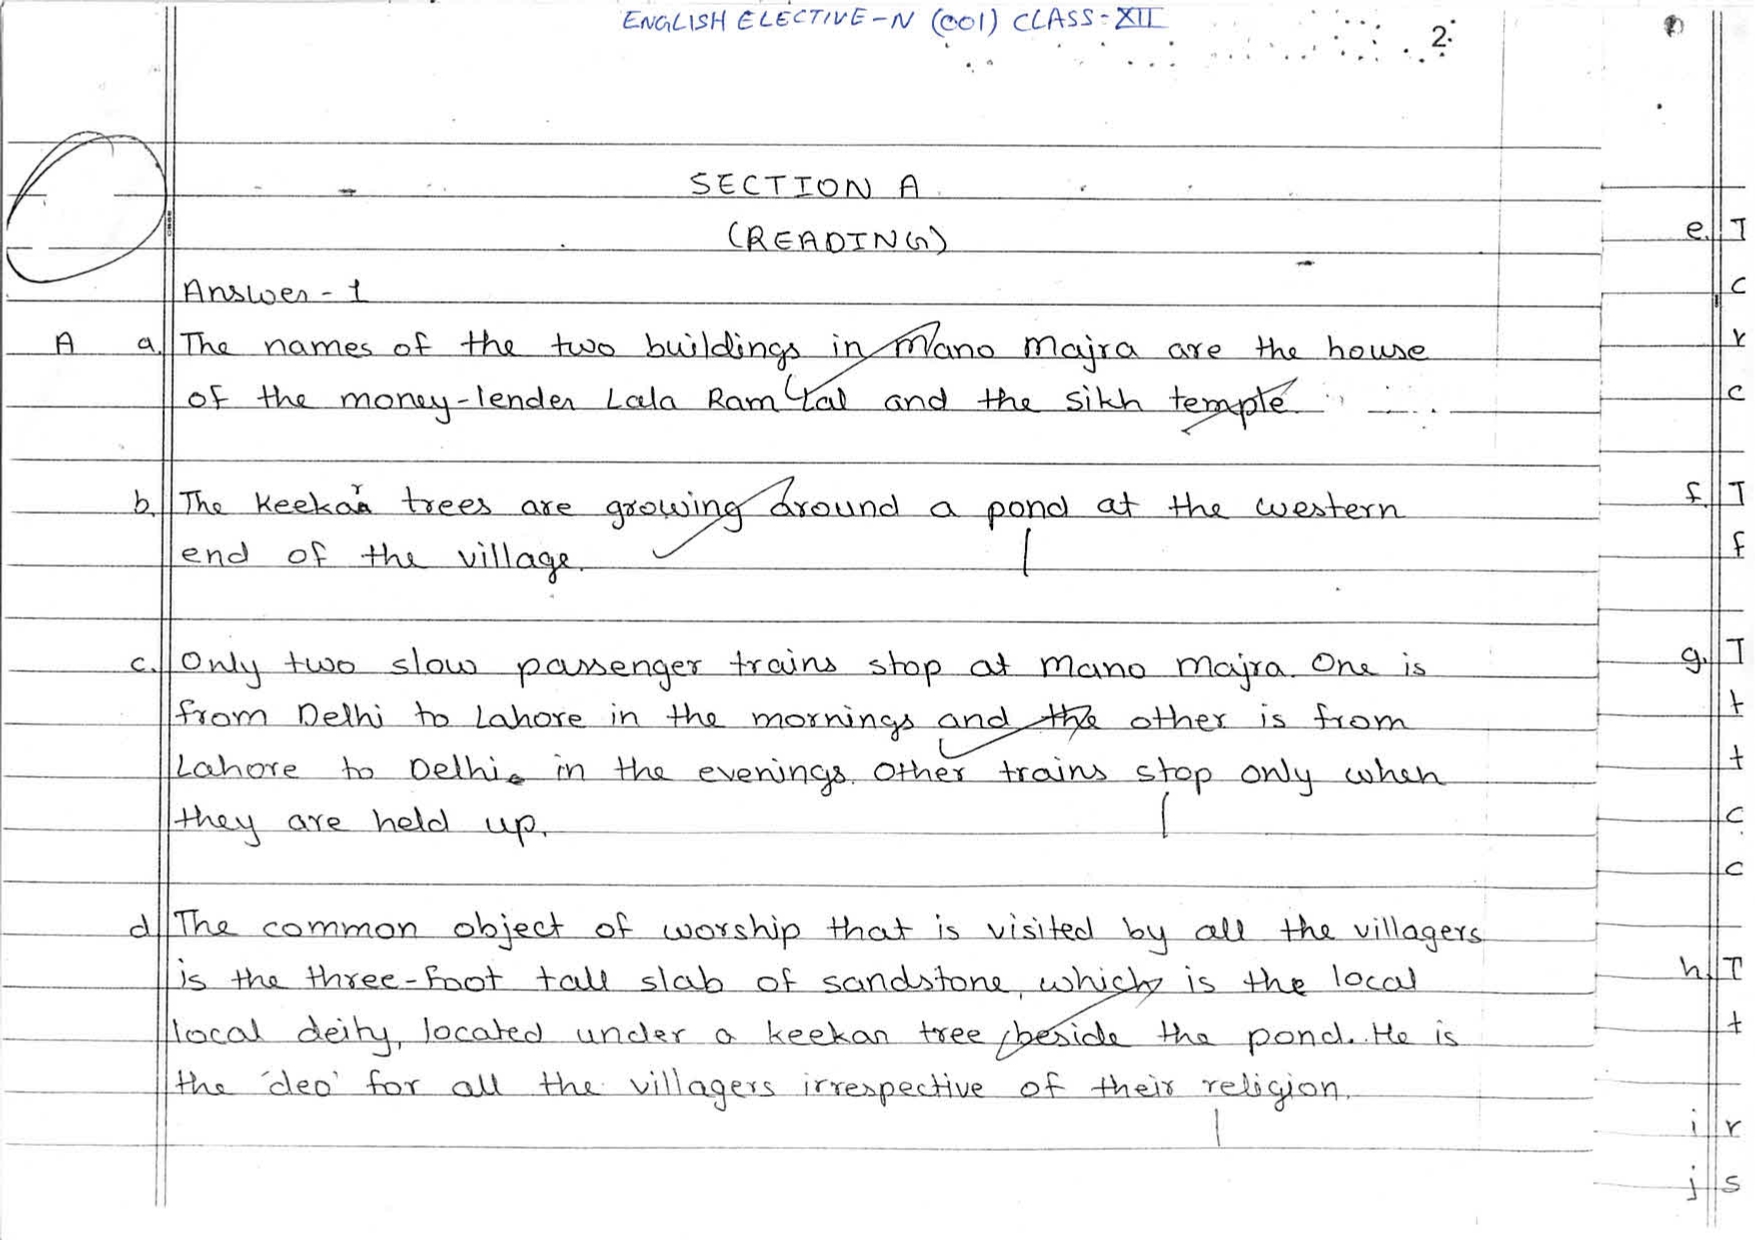 ENGLISH ELECTIVE-N (001) CLASS-XII
2
SECTION A
(READING)
Answer - 1
A a. The names of the two buildings in Mano Majra are the house
of the money-lender Lala Ram Lal and the Sikh temple.
b. The keekar trees are growing around a pond at the western
end of the village.
c. Only two slow passenger trains stop at Mano Majra. One is
from Delhi to Lahore in the mornings and the other is from
Lahore to Delhi in the evenings. Other trains stop only when
they are held up.
d. The common object of worship that is visited by all the villagers
is the three-foot tall slab of sandstone, which is the local
local deity, located under a keekar tree beside the pond. He is
the 'deo' for all the villagers irrespective of their religion.
e. T
c
r
c
f. T
f
g. T
t
t
c
c
h. T
t
i r
j s